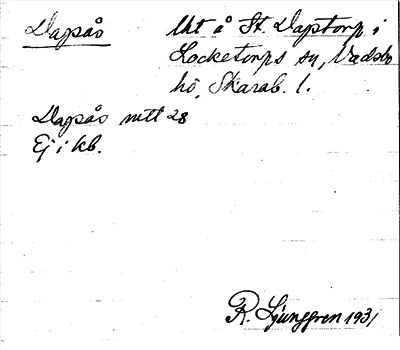 Dapsås
Uht å St. Dapstorp i
Locketorps sn, Vadsbo
hd, Skarab. l.
Dapsås mtl 28
Ej i kb.
R. Ljunggren 1931